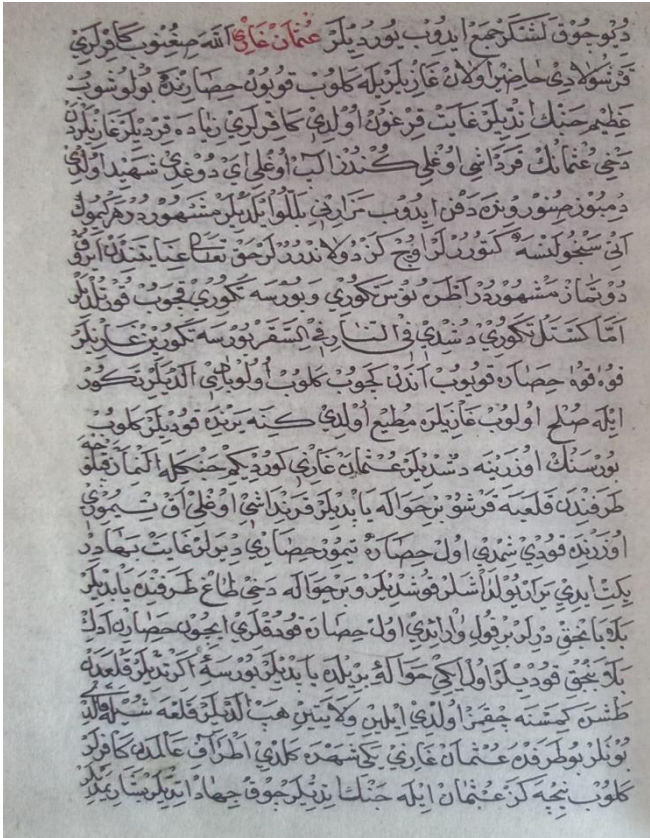 ديو جوق لشكر جمع ايدوب يوريديلر عثمان غازي الله صغنوب كافرلري
قرشولادي حاضر اولان غازيلريله كلوب قويون حصارنده بولوشوب
عظيم جنك اتديلر غايت قرغون اولدي كافرلري زياده قرديلر غازيلردن
دخي عثمانك قرداشي اوغلي كندز الب اوغلي اي دوغدي شهيد اولدي
صنور وينده دفن ايدوب مزارني بللو ايلديلر مشهور در هر كيموك
اتي سنجولنسه كتورورلر اوج كز دولاندررلر حق تعالى عنايتندن
مشهور در اطره نوس تكوري و بورسه تكوري قچوب قورتلديلر
اما كستل تكوري دشدي في النار في السقر بورسه تكورين غازيلر
قوه قوه حصاره قويوب اندن كجوب كلوب اولوباتي الديلر تكور
ايله صلح اولوب غازيلره مطيع اولدي كنه يرنده قوديلر كلوب
بورسنك اوزرينه دشديلر عثمان غازي كورديكم جنكله النماز قبلوجه
طرفندن قلعيه قرشو بر حواله يابديلر قرنداشي اوغلي اق تيموري
اوزرنده قودي شمدي اول حصاره تيمور حصاري ديرلر غايت بهادر
يكت ايدي يرار يولداشلر قوشديلر و بر حواله دخي طاغ طرفنده يابديلر
بلابانجق ديرلر بر قولي وارايدي اول حصاره قودقلري ايچون حصارن ادن
بلابنجق قوديلر اول ايكي حواله بر ييلده يابديلر بورسه
طشره كيمسنه چقمز اولدي ايلين ولايتين هب الديلر قلعه شويله قالدي
بونلر بو طرفده عثمان غازي يكي شهره كلدي اطراف عالمدن كافرلر
كلوب نيجه كز عثمان ايله جنك اتديلر جوق جهاد اتديلر